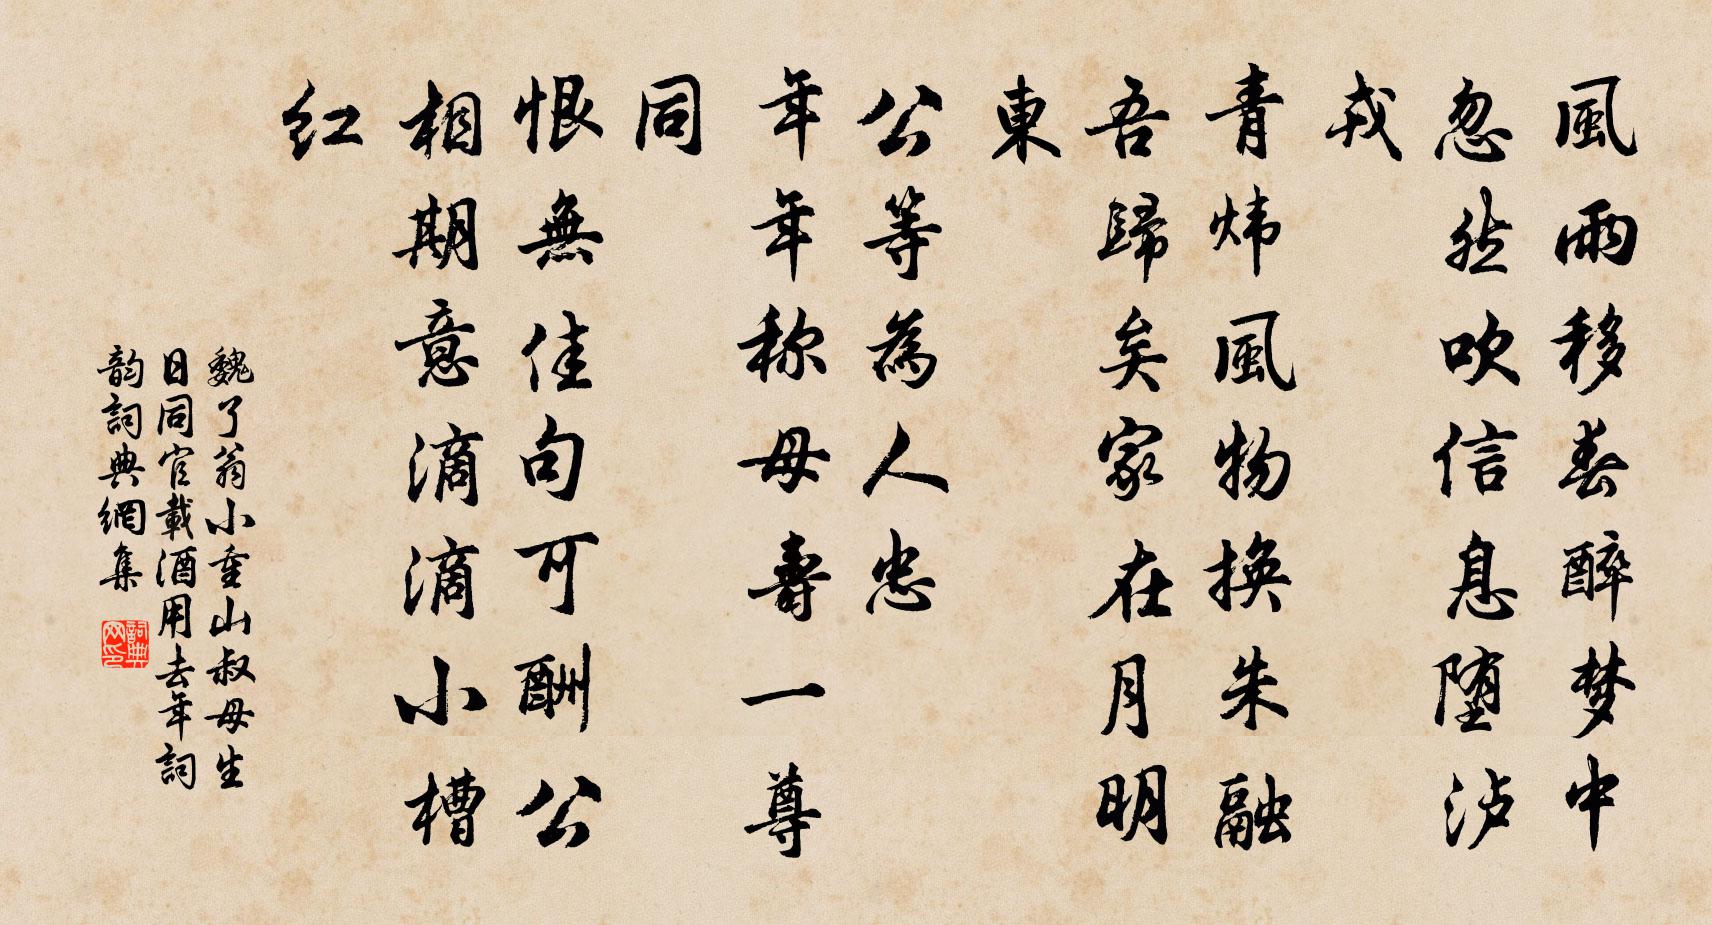 風雨移春醉梦中
忽然吹信息堕泸
戎
青炜風物换朱融
吾歸矣家在月明
東
公等為人忠
年年称母壽一尊
同
恨無佳句可酬公
相期意滴滴小槽
红
魏了翁小重山叔母生
日同官載酒用去年詞
韵詞典網集
詞典
网印